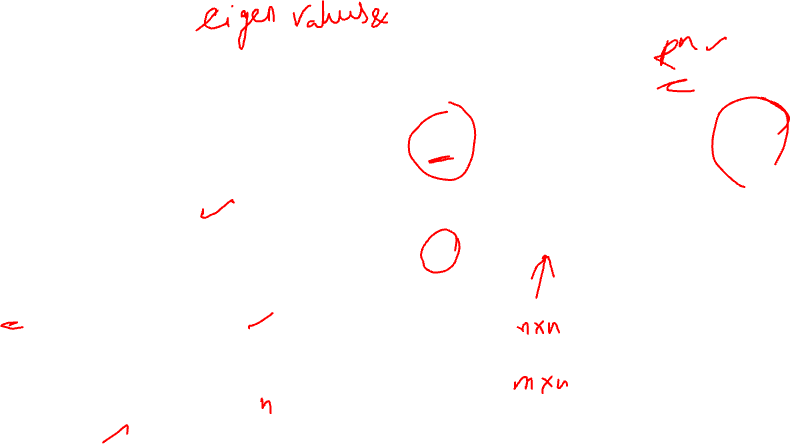 eigen values &
Rⁿ
n×n
m×n
n